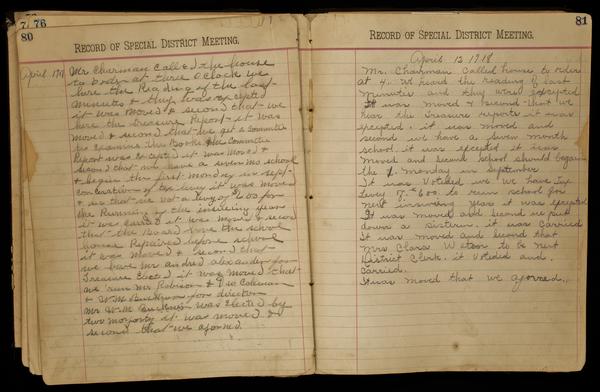 76
80
RECORD OF SPECIAL DISTRICT MEETING.
April 191
Mr Chairman Call ed the house
to order at three O Clock we
here the Reading of the last
minuets & they was excepted
it was Moved & second that we
here the Treasure Report it was
moved & second that we get a Committee
to Examine the Books the Committee
Report was Excepted it was Moved &
second that we have a seven mo school
& begin the first monday in sept
it was moved
the Running of the insueing year
it was carried it was moved & second
that the Board have the school
house Repaired before school
it was Moved & second that
we have Mr andred alexander for
Treasure Elected it was moved that
we run Mr Robison & Coleman
& W.M. for director
Mr W.M. was Elected by
two it was moved &
second that we ajorned
81
RECORD OF SPECIAL DISTRICT MEETING.
April 12 1918
Mr. Chairman called house to order
at 4. We heard the reading of last
minutes and they were excepted
It was moved & second that we
hear the treasure reports it was
excepted. it was moved and
second we have a seven month
school. it was excepted it was
moved and second school should began
the 1. monday in September
It was Votided we have Tax
Levy to run school for
next insuring year it was excepted
It was moved and second we put
down a sistern. it was carried
It was moved and second that
Mrs Clara Watson to be next
District Clerk. it Votided and.
carried.
It was moved that we ajorned..